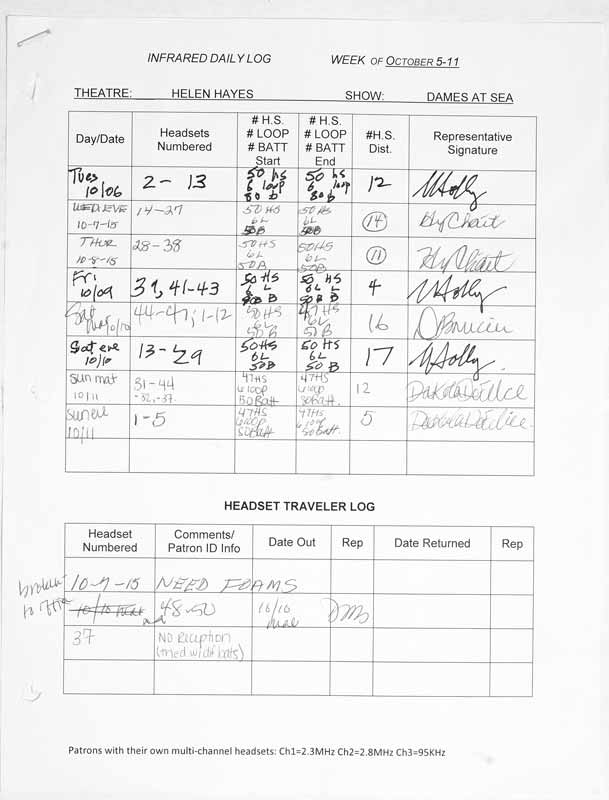 INFRARED DAILY LOG WEEK OF OCTOBER 5-11
THEATRE: HELEN HAYES SHOW: DAMES AT SEA
Day/Date
Headsets
Numbered
# H.S.
# LOOP
# BATT
Start
# H.S.
# LOOP
# BATT
End
#H.S.
Dist.
Representative
Signature
Tues
10/06
2 - 13
50 hs
6 loop
80 b
50 hs
6 loop
80 b
12
WED. EVE
10-7-15
14-27
50HS
6L
50B
50HS
6L
50B
14
THUR
10-8-15
28-38
50HS
6L
50B
50HS
6L
50B
11
Fri
10/09
39, 41-43
50 HS
6 L
50 B
50 HS
6 L
50 B
4
Sat
mat 10/10
44-47; 1-12
HS
6L
50B
HS
6L
50B
16
Sat eve
10/10
13-29
50HS
6L
50B
50 HS
6L
50 B
17
Sun mat
10/11
31-44
-32,-37.
47HS
6 loop
50 Batt
47HS
6 loop
50 Batt.
12
sun eve
10/11
1-5
47HS
6 loop
50 Batt
47HS
6 loop
50 Batt.
5
HEADSET TRAVELER LOG
Headset
Numbered
Comments/
Patron ID Info
Date Out
Rep
Date Returned
Rep
10-7-15
NEED FOAMS
broken
48-50
10/10
37
NO Reception
(tried w/diff bats)
Patrons with their own multi-channel headsets: Ch1=2.3MHz Ch2=2.8MHz Ch3=95KHz